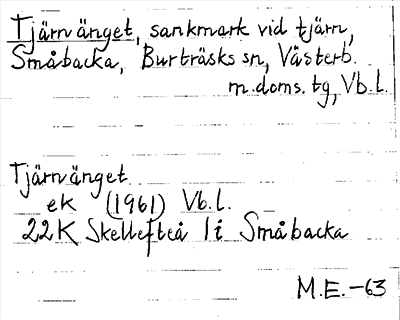 Tjärnänget, sankmark vid tjärn,
Småbacka, Burträsks sn, Västerb.
m.doms.tg, Vb.l.
Tjärnänget
ek (1961) Vb.l.
22K Skellefteå 1i Småbacka
M.E.-63